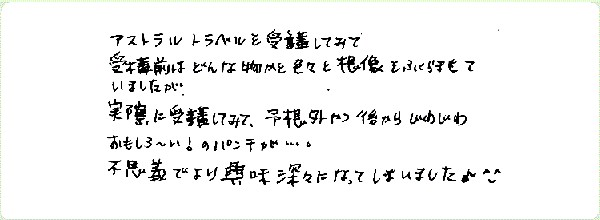 アストラルトラベルを受講してみて
受講前はどんな物かと色々と想像をふくらませて
いましたが、
実際に受講してみて、予想外やつ後からじわじわ
おもしろ〜い!のパンチが…。
不思議でより興味深々になってしまいました♪^^